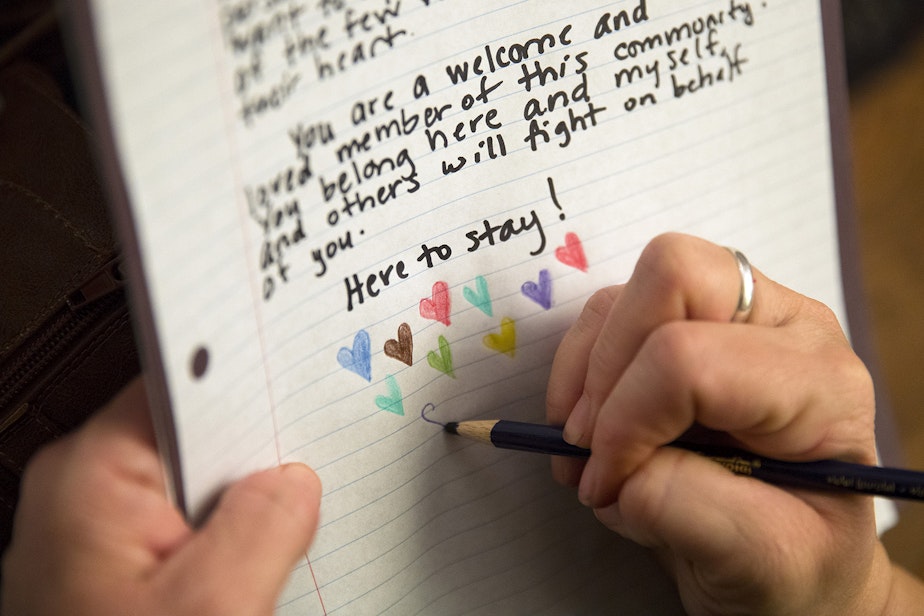 want to
of the few
their heart.
You are a welcome and
loved member of this community.
You belong here and myself,
and others will fight on behalf
of you.
Here to stay!